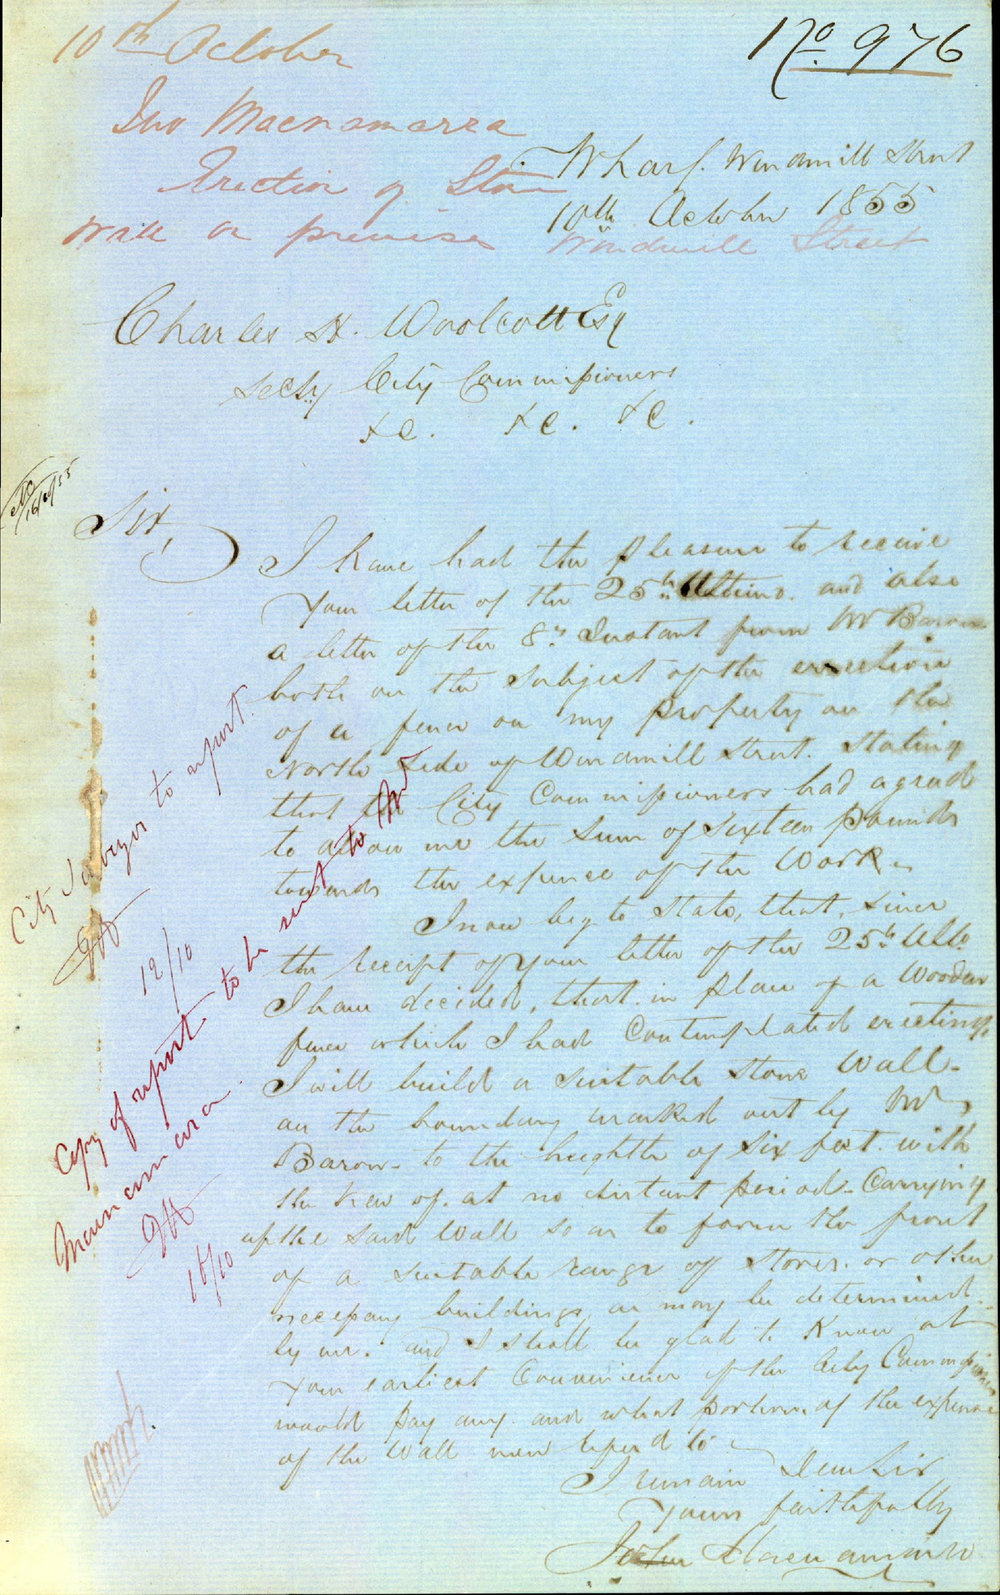 10th October
No. 976
Jno Macnamara
Erection of Stone
Wall on premises Windmill Street
Wharf. Windmill Street
10th October 1855
Charles H. Woolcott Esq
Secty City Commissioners
&c. &c. &c.
Sir,
I have had the pleasure to receive
Your letter of the 25th Ultimo. and also
a letter of the 8th Instant from Mr Baron
both on the Subject of the errection
of a fence on my property on the
North Side of Windmill Street. Stating
that the City Commissioners had agreed
to allow me the Sum of Sixteen Pounds
towards the expence of the Work.
I now beg to state, that, since
the receipt of Your letter of the 25th Ulto
I have decided, that in place of a Wooden
fence which I had Contemplated erecting,
I will build a suitable Stone Wall
on the boundary marked out by Mr
Baron to the heighth of Six feet. with
the view of. at no distant period Carrying
up the said Wall so as to form the front
of a suitable range of Stores. or other
necessary buildings as may be determined
by me. and I shall be glad to Know at
Your earliest Convenience if the City Commissioners
would pay any and what portion of the expence
of the Wall now refered to
I remain Dear Sir
Yours faithfully
John Macnamara
City Surveyor to report.
12/10
Copy of report to be sent to Mr
Macnamara